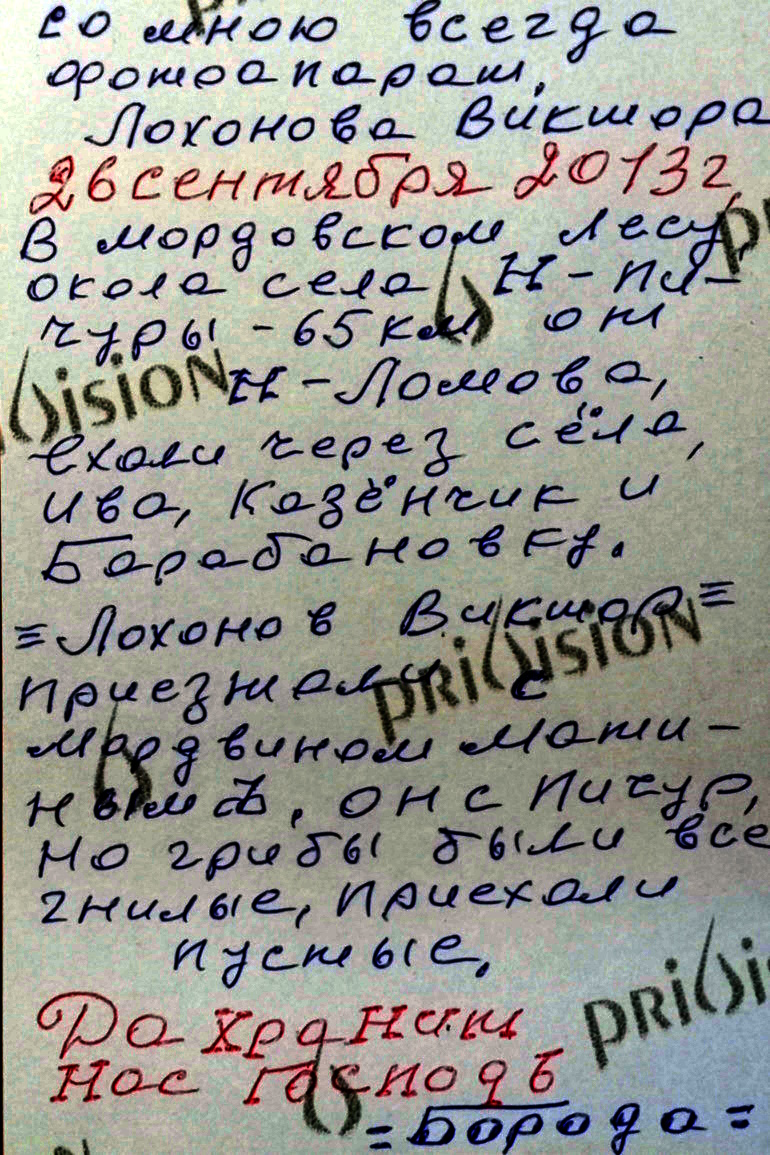 со мною всегда
фотоапарат.
Лохонова Виктора
26 сентября 2013 г.
В мордовском лесу,
окола села Н-Пи-
чуры - 65 км от
Н-Ломова,
ехали через сёла,
Ива, Казёнчик и
Барабановку.
=Лохонов Виктор=
Приезжали с
мордвином Мати-
ным, он с Пичур,
но грибы были все
гнилые, приехали
пустые.
Да хранит
Нас Господь
=Борода=
priOision
priOision